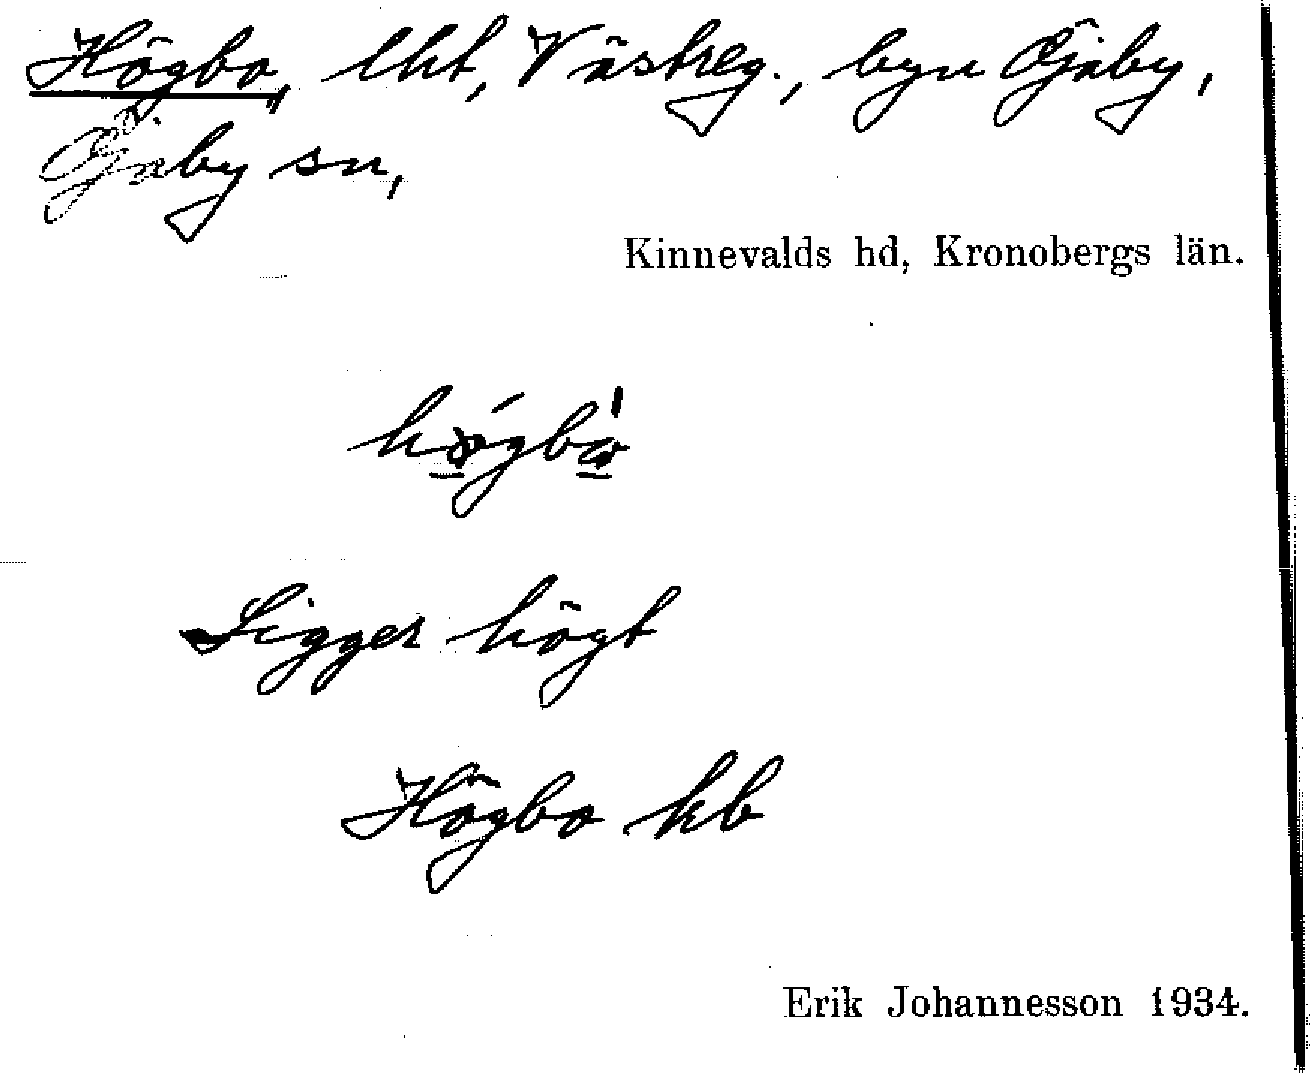 Högbo, lht, Västreg., byn Öjaby,
Öjaby sn,
Kinnevalds hd, Kronobergs län.
Ligger högt
Högbo kb
Erik Johannesson 1934.